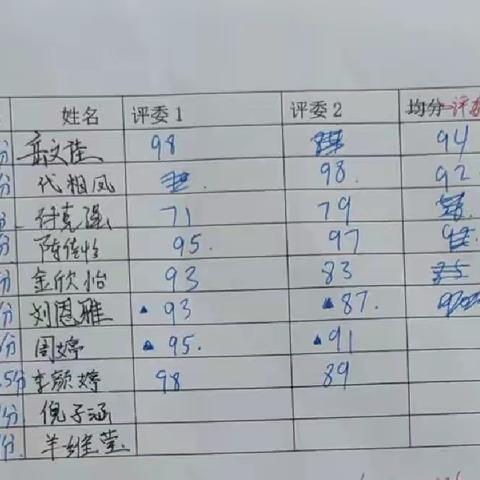 姓名 评委1 评委2 均分 评
分 98 94
分 代相凤 98. 92
71 79
分 陈佳怡 95. 97
分 金欣怡 93 83
分 刘恩雅 ▲ 93 ▲ 87.
分 周婷 ▲ 95. ▲ 91
.5分 李颜婷 98 89
分 倪子涵
份. 羊维莹.